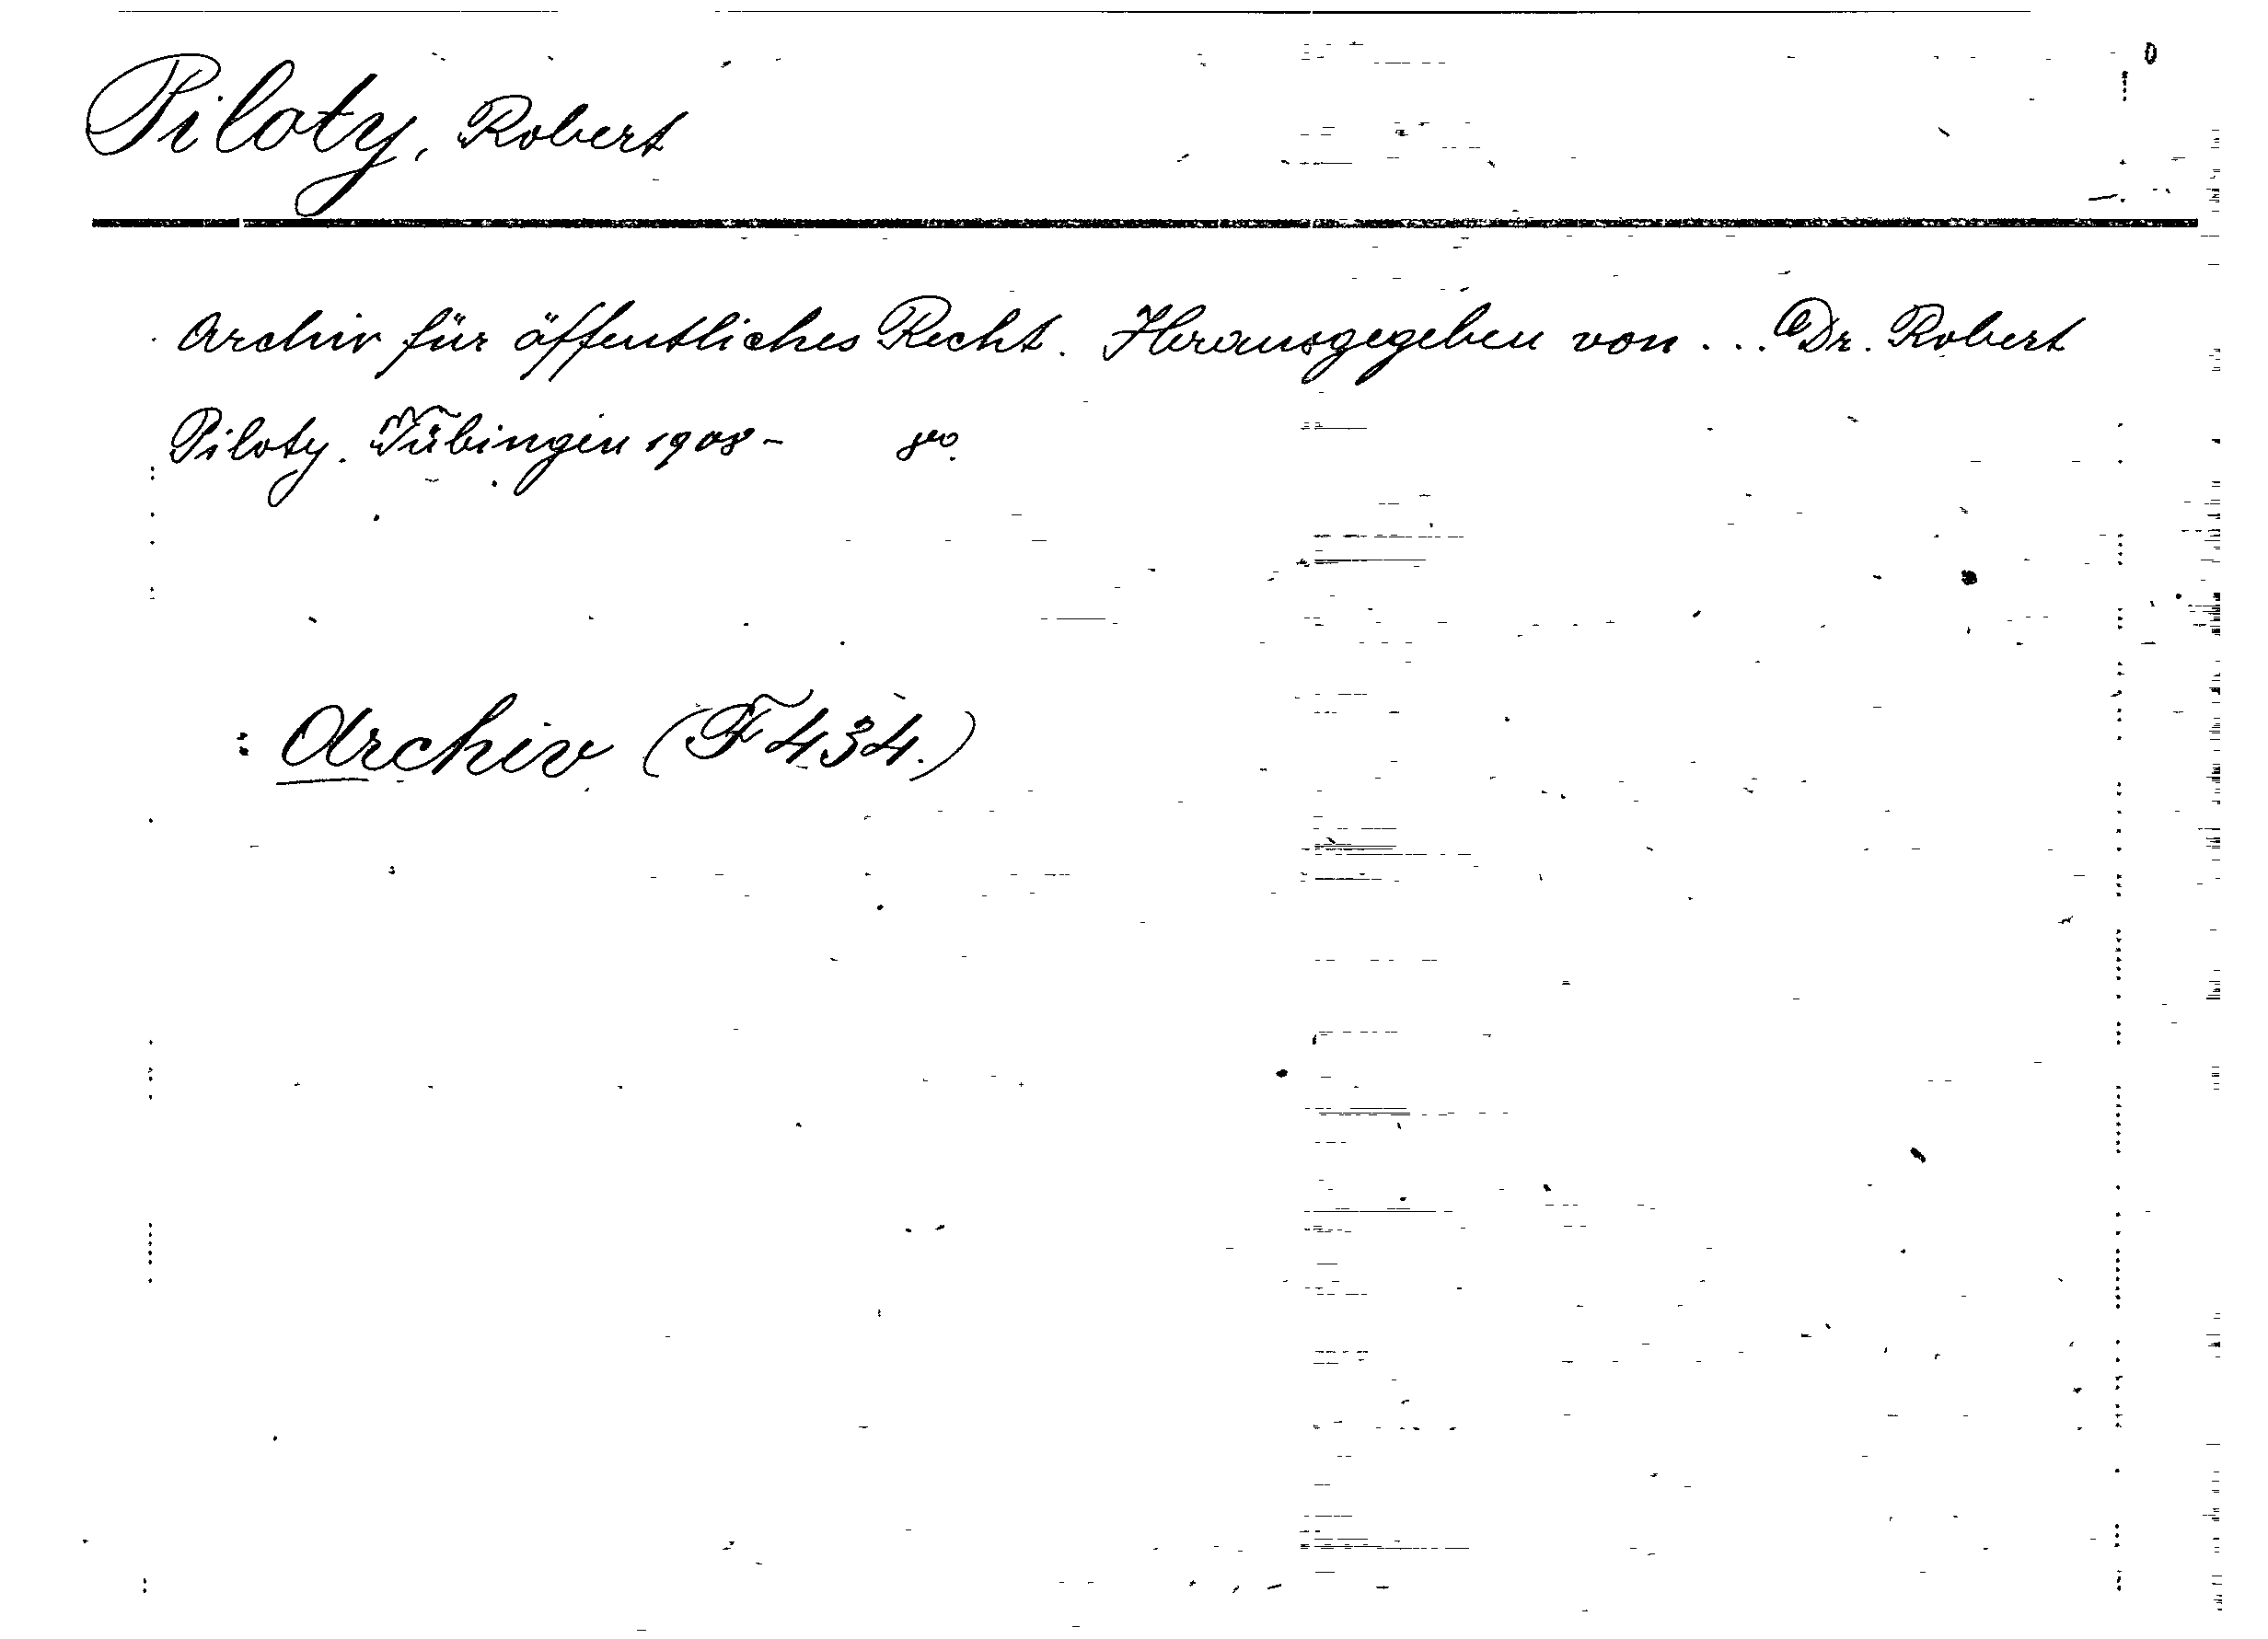 Piloty, Robert
Archiv für öffentliches Recht. Herausgegeben von ... Dr. Robert
Piloty. Tübingen 1908- 8vo.
: Archiv (F 434.)